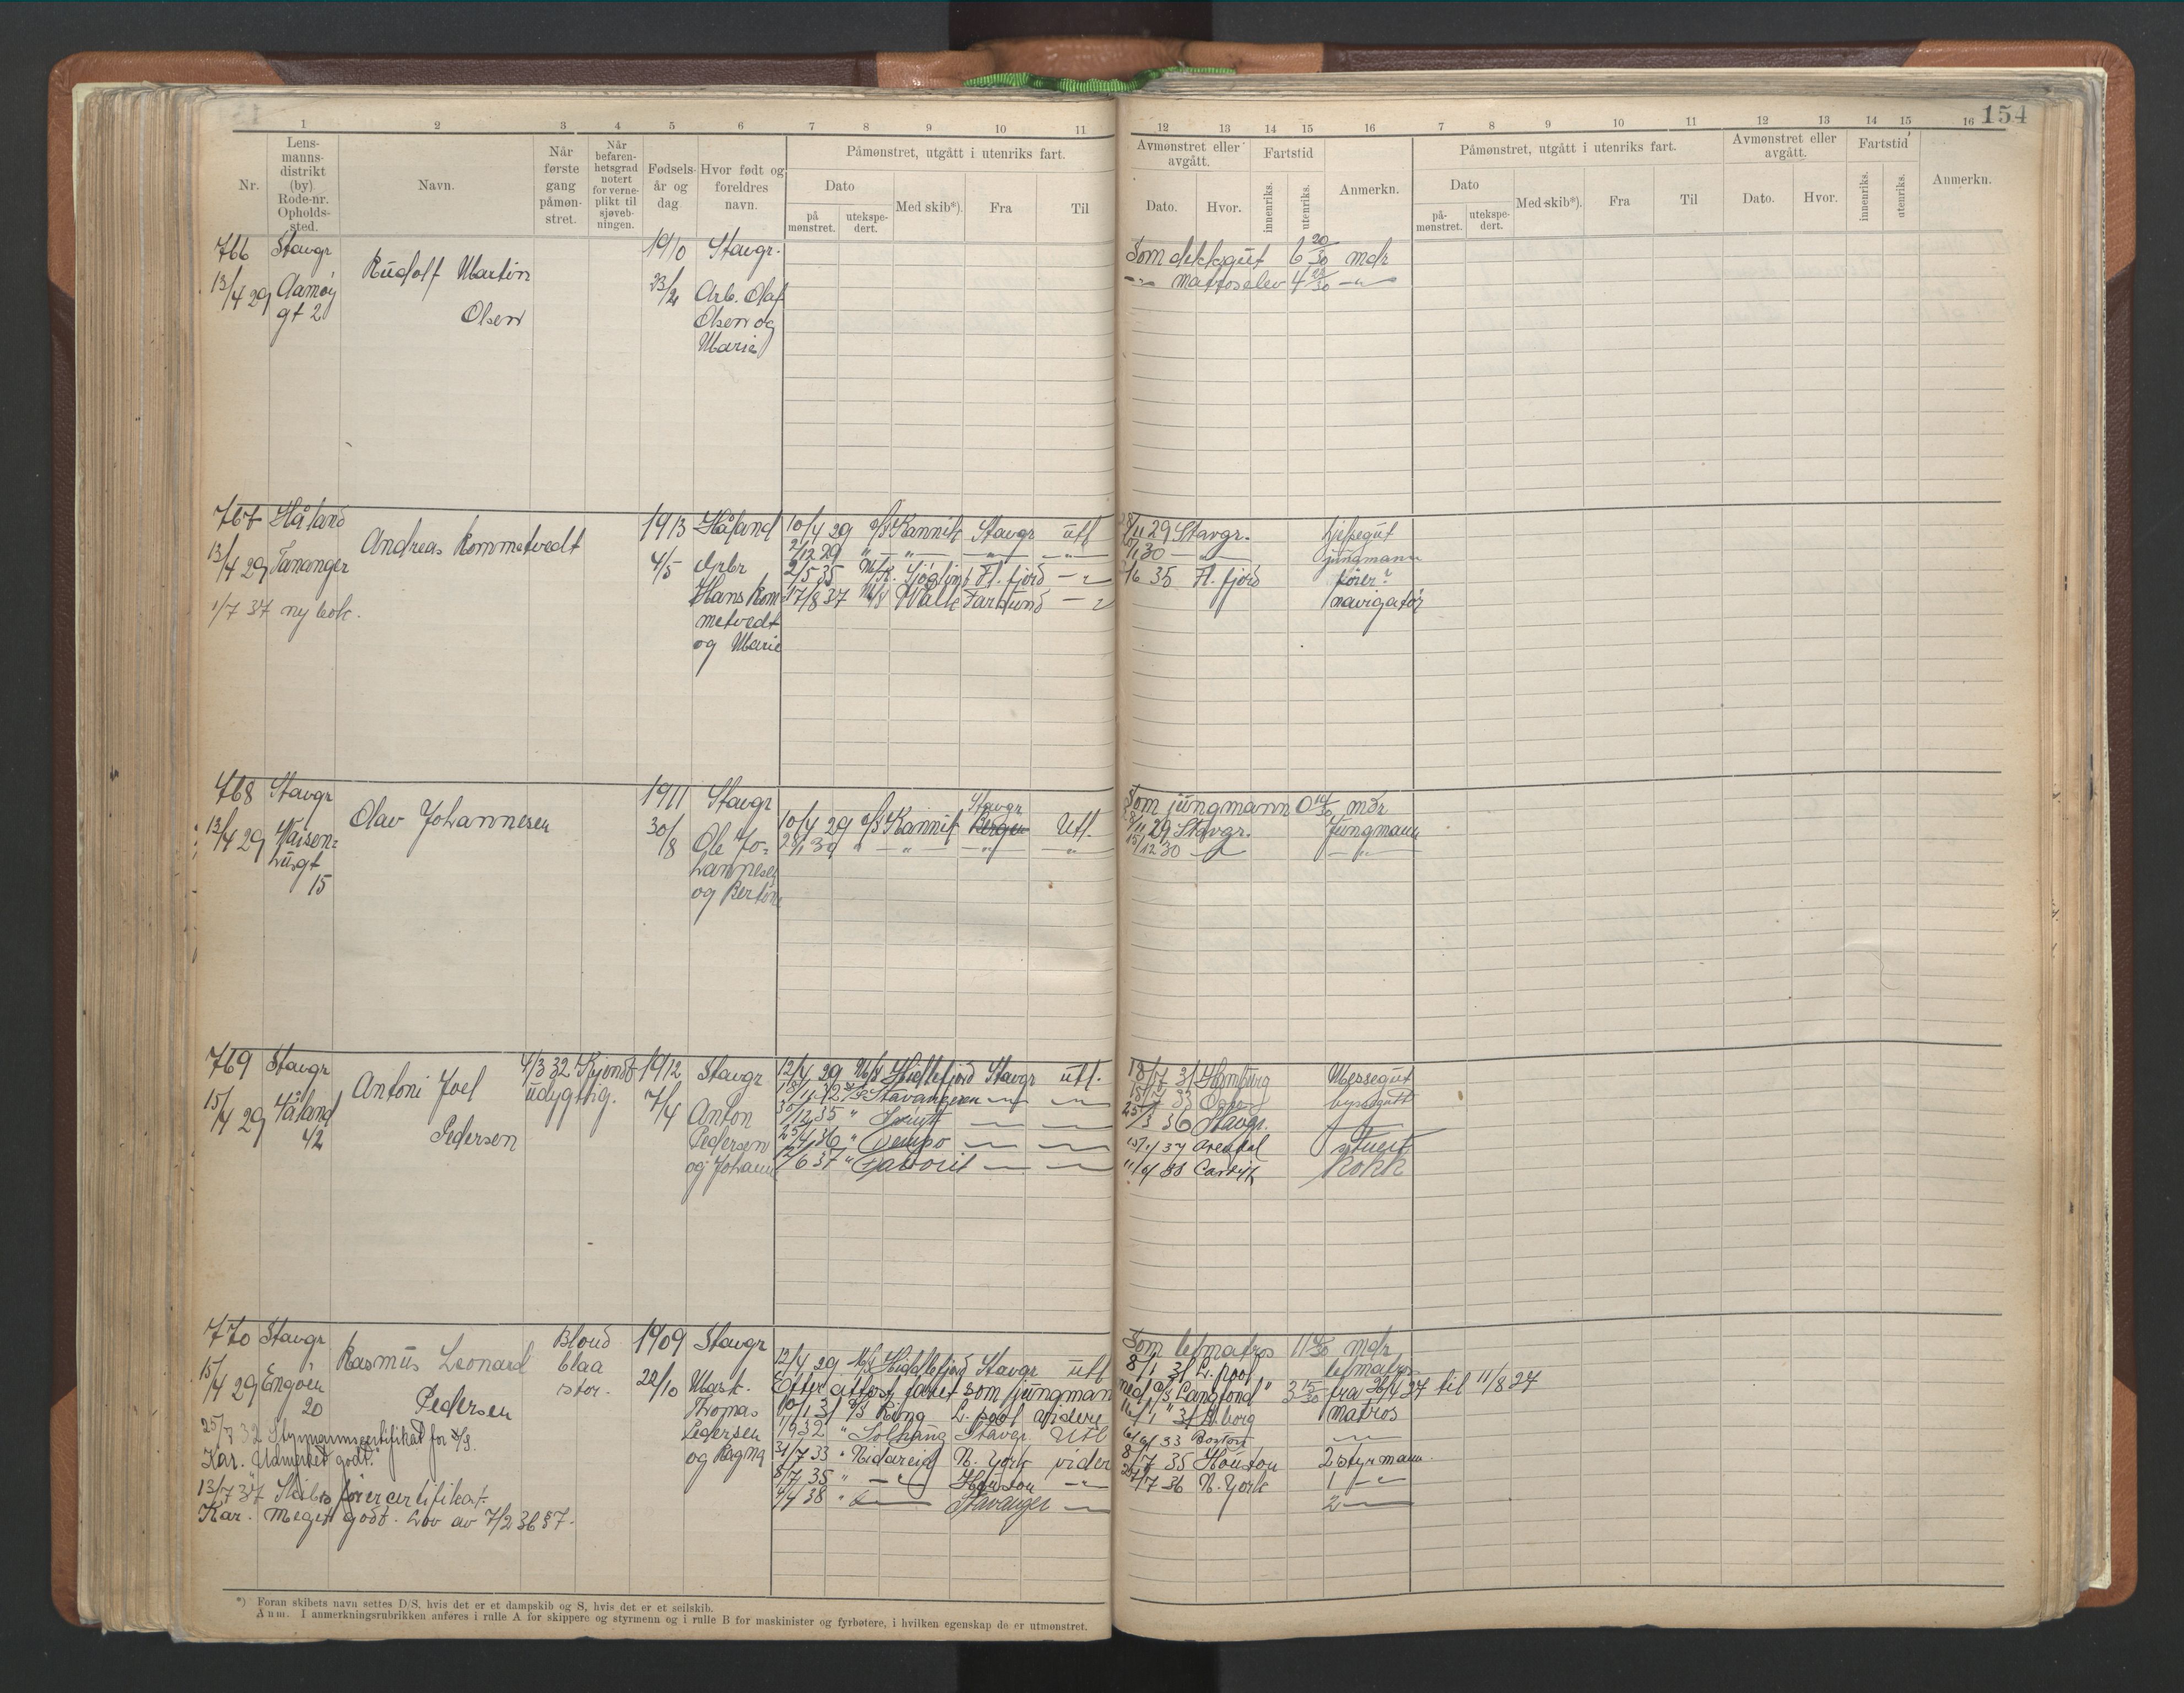 154
1 2 3 4 5 6 7 8 9 10 11
12 13 14 15 16 7 8 9 10 11 12 13 14 15 16
Nr.
Lens-
manns-
distrikt
(by)
Rode-nr.
Opholds-
sted.
Navn.
Når
første
gang
påmøn-
stret.
Når
befaren-
hetsgrad
notert
for verne-
plikt til
sjøveb-
ningen.
Fødsels-
år og
dag.
Hvor født og
foreldres
navn.
Påmønstret, utgått i utenriks fart.
Dato
på
mønstret.
utekspe-
dert.
Med skib*).
Fra
Til
Avmønstret eller
avgått.
Dato.
Hvor.
Fartstid
innenriks.
utenriks.
Anmerkn.
Påmønstret, utgått i utenriks fart.
Dato
på-
mønstret.
utekspe-
dert.
Med skib*).
Fra
Til
Avmønstret eller
avgått.
Dato.
Hvor.
Fartstid
innenriks.
utenriks.
Anmerkn.
766 Stavgr
13/4 29 Aamøy
gt 2
Rudolf Martin
Olsen
1910
23/2
Stavgr.
Arb. Olaf
Olsen og
Marie
Som dekksgut 6 20/30 mdr
matroselev
767 Håland
13/4 29 Tananger
1/7 37 ny bok.
Andreas Rommetvedt
1913
4/5
Håland
Hans Rom
metvedt
og Marie
10/4 29 Kannik Stavgr utl
2/12 29 " — " —
2/5 35 Fl. fjord
17/8 37 Farsund
29 Stavgr.
30 — " —
35 Fl. fjord
jungmann
fører
navigatør
768 Stavgr
13/4 29 Waisen=
husgt
15
Olav Johannesen
1911
30/8
Stavgr
Ole Jo=
hannesen
og
Stavgr
10/4 29 Kannik Bergen Utl.
Som jungmann 0 mdr
29 Stavgr. Jungmann
15/12 30
769 Stavgr
15/4 29 Håland
42
Antoni Joel
Pedersen
4/3 32 Kjendt
udygtig.
1912
7/4
Stavgr
Anton
Pedersen
og Johanne
12/4 29 M/S Hidlefjord Stavgr utl.
Stavangeren
35 "
36 " Tempo
6 37 " Favorit
18/7 31 Hamburg Messegut
33 byssegutt
3 36 Stavgr.
37 Arendal stuert
38 kokk
770 Stavgr
15/4 29 Engvei
20
Rasmus Leonard
Pedersen
Blond
blaa
stor.
1909
22/10
Stavgr
Mask.
Thomas
Pedersen
og Ragna
25/7 32 Styrmannscertifikat for
Kar. Udmerket godt.
13/7 37 Skibsførercertifikat.
Kar. Meget godt. Lov av 7/2 36 § 7.
12/4 29 M/S Hidlefjord Stavgr utl
Efter attest faret som jungman
10/1 31 Ring L. pool videre
1932 " Solhaug Stavgr. Utl
7 33 " Nidareid N. York vider
8/7 35 " Houston
4 38 " Stavanger
Som letmatros 11 mdr
8/1 31 L. pool letmatros
med Langfond" 3 15/30 fra 26/4 27 til 11/8 27
31 matros
33 Boston
8/7 35 Houston 2 styrmann
7 36 N. York 1
2
*) Foran skibets navn settes D/S, hvis det er et dampskib og S, hvis det er et seilskib.
Anm. I anmerkningsrubrikken anføres i rulle A for skippere og styrmenn og i rulle B for maskinister og fyrbøtere, i hvilken egenskap de er utmønstret.